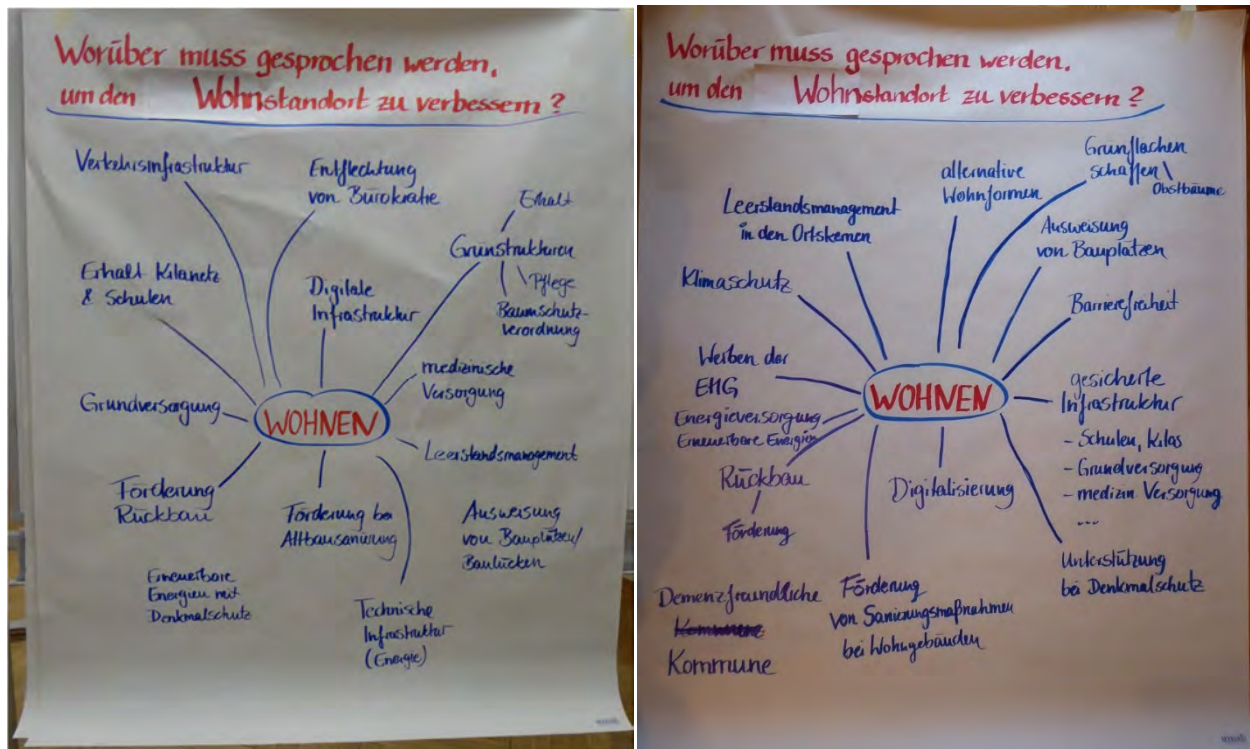 Worüber muss gesprochen werden,
um den Wohnstandort zu verbessern?
Verkehrsinfrastruktur
Entflechtung
von Bürokratie
Erhalt
Grünstrukturen
Pflege
Baumschutz-
verordnung
Erhalt Kitanetz
& Schulen
Digitale
Infrastruktur
medizinische
Versorgung
Grundversorgung
WOHNEN
Leerstandsmanagement
Förderung
Rückbau
Förderung bei
Altbausanierung
Ausweisung
von Bauplätzen/
Baulücken
Erneuerbare
Energien mit
Denkmalschutz
Technische
Infrastruktur
(Energie)
Worüber muss gesprochen werden,
um den Wohnstandort zu verbessern?
Grünflächen
schaffen
Obstbäume
alternative
Wohnformen
Leerstandsmanagement
in den Ortskernen
Ausweisung
von Bauplätzen
Klimaschutz
Barrierefreiheit
Werben der
EHG
WOHNEN
gesicherte
Infrastruktur
- Schulen, Kitas
- Grundversorgung
- medizin Versorgung
...
Energieversorgung
Erneuerbare Energien
Rückbau
Förderung
Digitalisierung
Unterstützung
bei Denkmalschutz
Förderung
von Sanierungsmaßnahmen
bei Wohngebäuden
Demenzfreundliche
Kommune